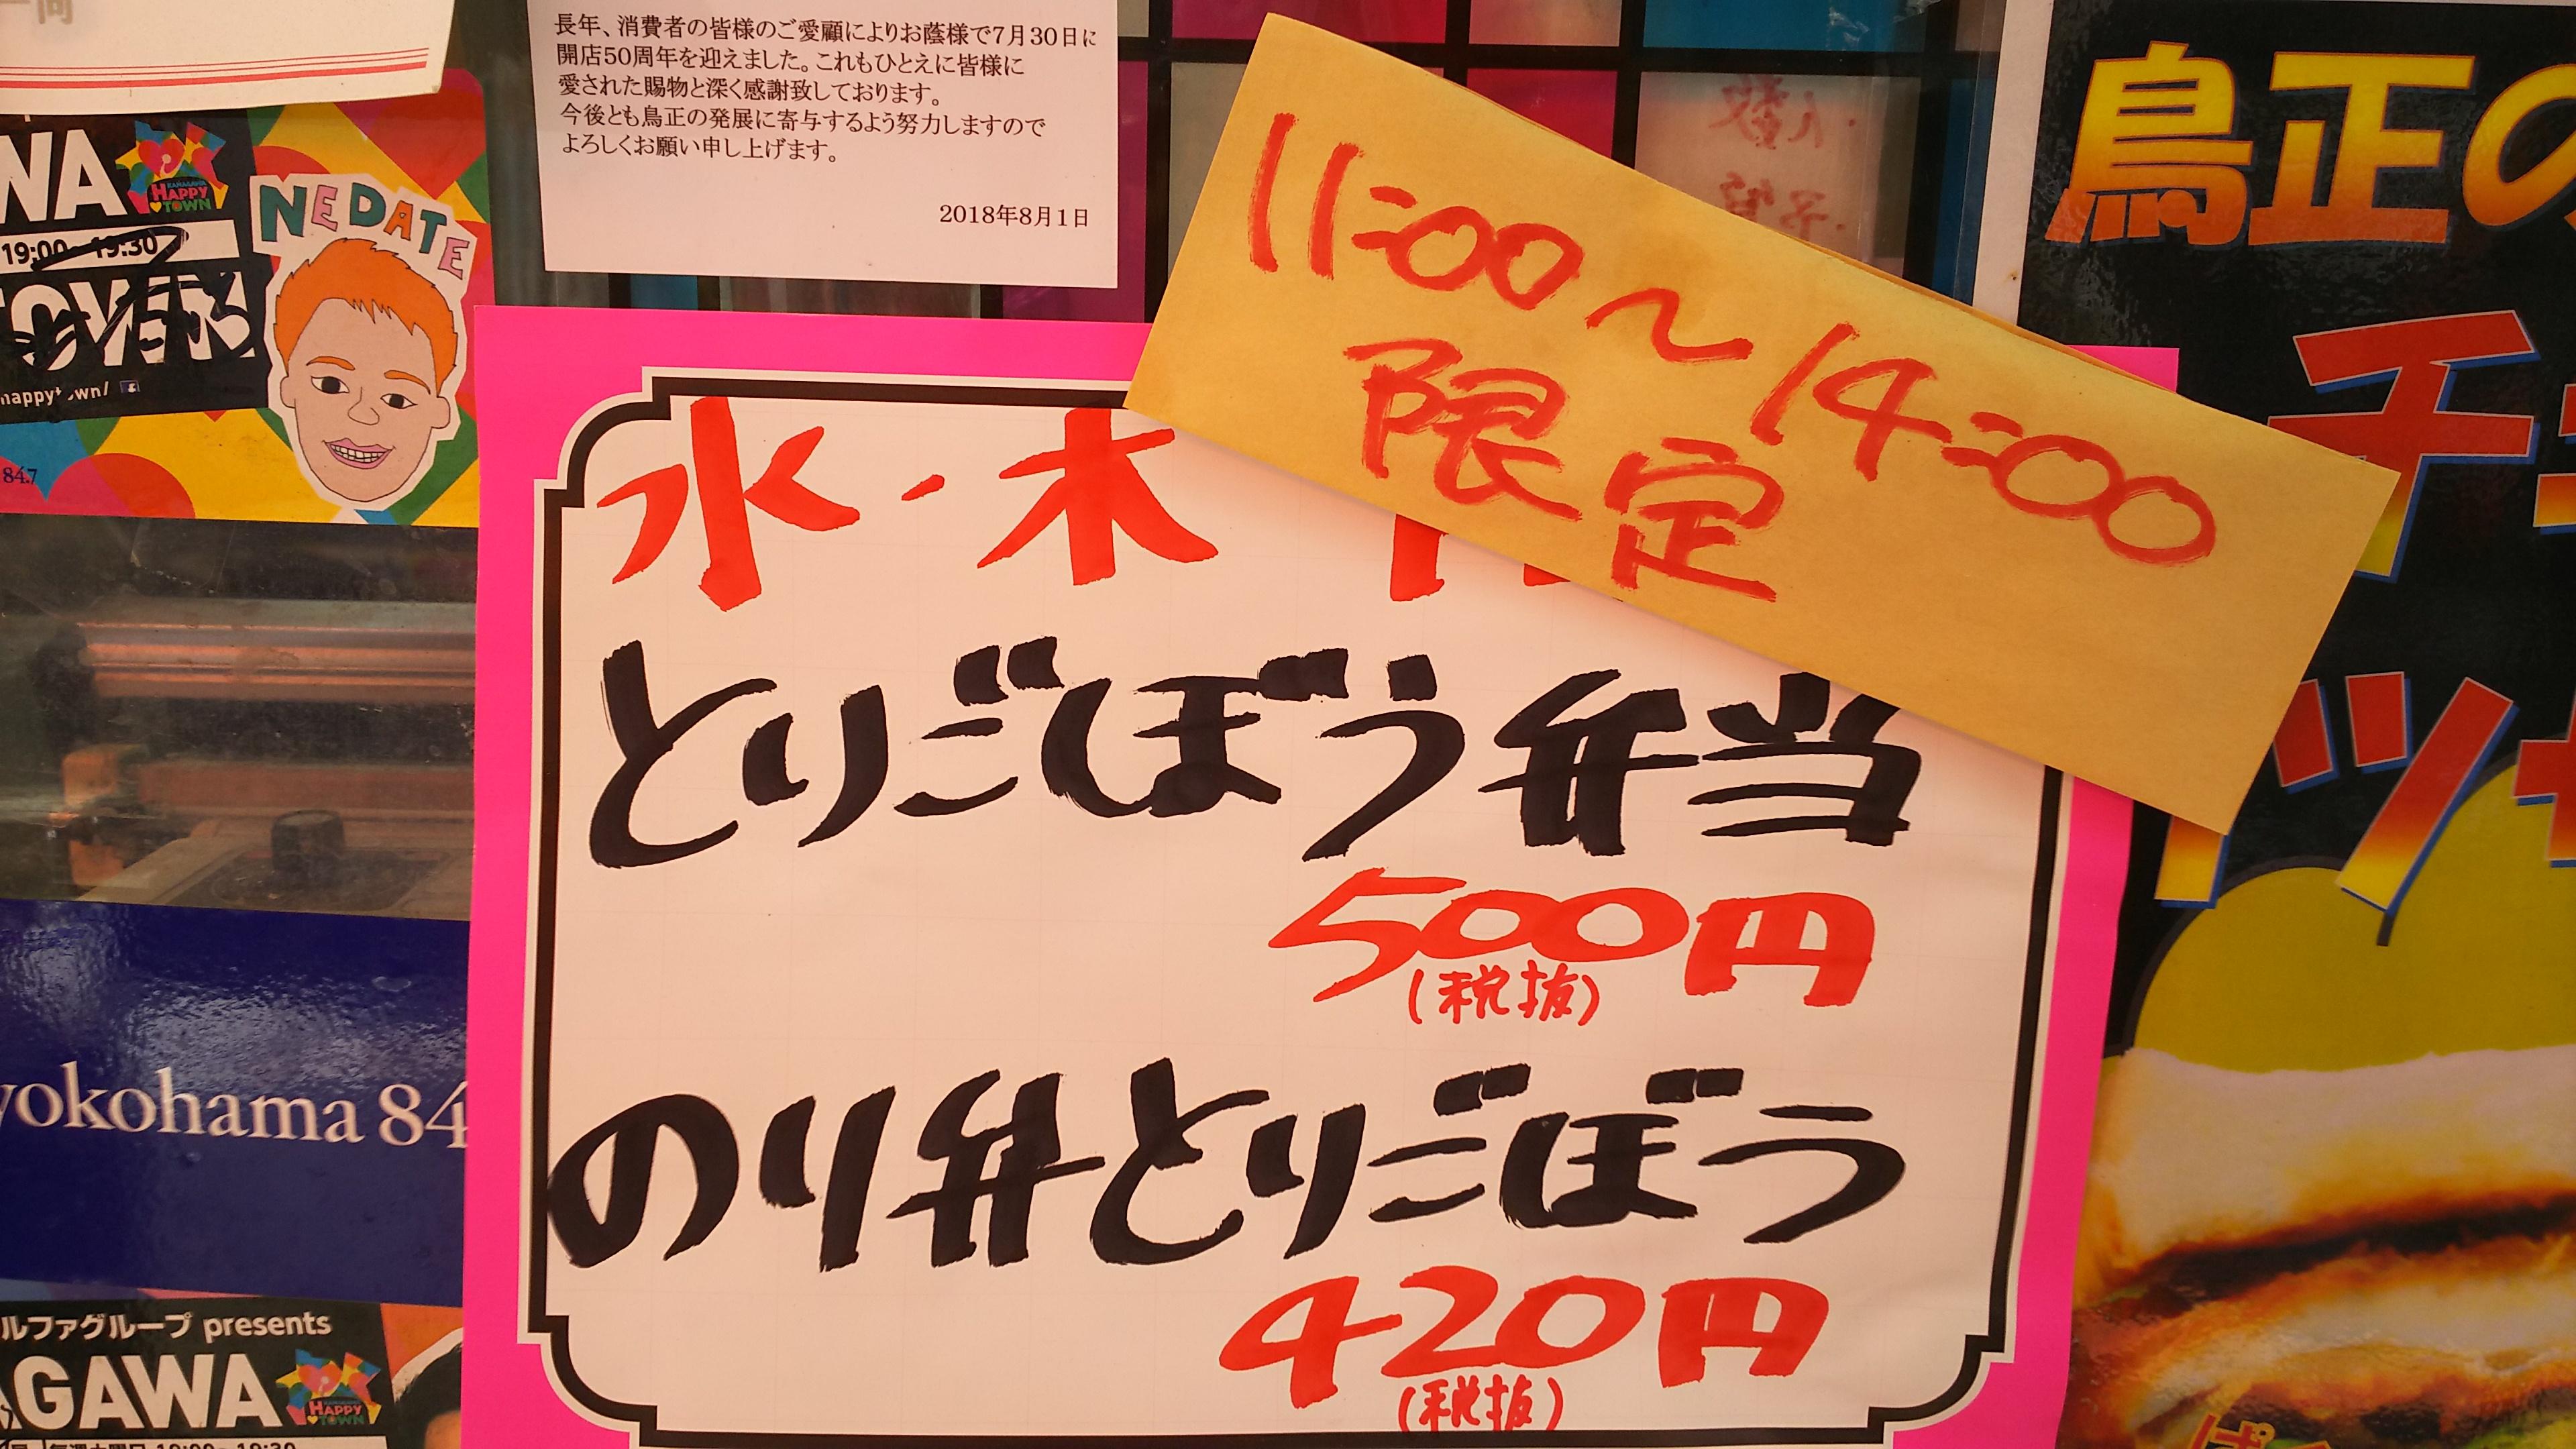 長年、消費者の皆様のご愛顧によりお蔭様で7月30日に
開店50周年を迎えました。これもひとえに皆様に
愛された賜物と深く感謝致しております。
今後とも鳥正の発展に寄与するよう努力しますので
よろしくお願い申し上げます。
2018年8月1日
WA
KANAGAWA
HAPPY
TOWN
NEDATE
19:00~19:30
84.7
yokohama 84
ルファグループ presents
AGAWA
KANAGAWA
HAPPY
TOWN
11:00~14:00
限定
水・木
とりごぼう弁当
500円
(税抜)
のり弁とりごぼう
420円
(税抜)
鳥正の
チ
ツ
ぱ